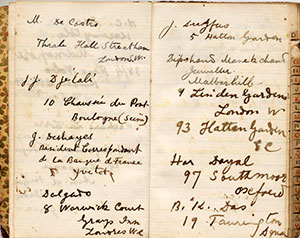 M. De Castro
Thrale Hall Streatham
London W.
J. J. Djelalé
10 Chaussée du Pont
Boulogne (Seine)
G. Deshayes
Resident Correspondant
de la Banque de France
Yvetot
Delgado
8 Warwick Court
Grays Inn
Londres WC
J. Duffus
5 Hatton Garden
Dipchand Manekchand
Jeweller
Malbarhill
9 Linden Gardens
London W
93 Hatton Garden
EC
Har Dayal
97 Southmoor
Oxford
B. "K. Das"
19 Tavington
Square